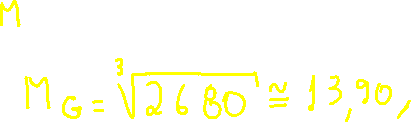 M
M_G = ∛2680 ≅ 13,90,